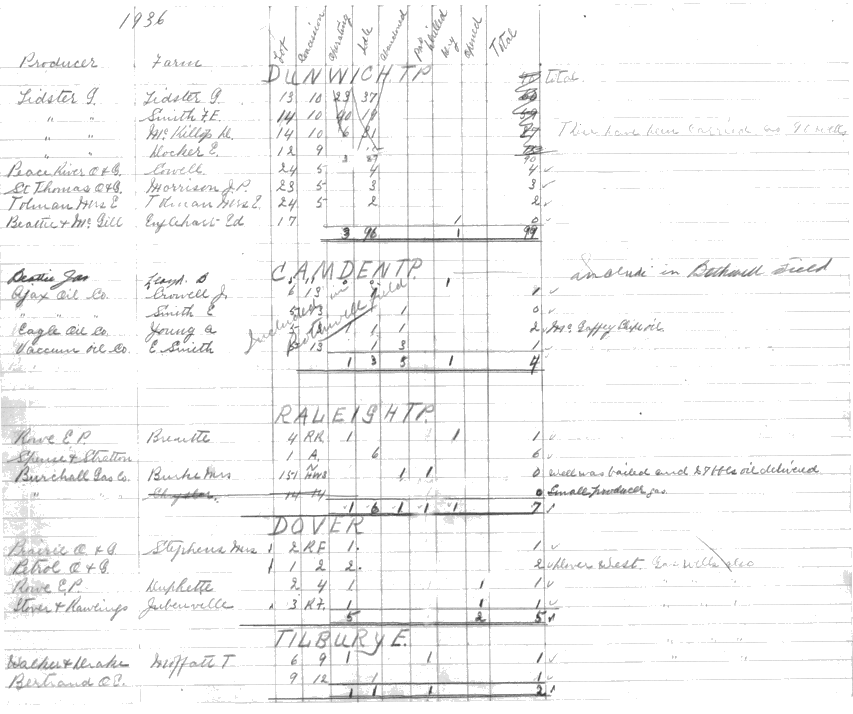 1936
Producer Farm Lot Concession Operating Idle Abandoned Drilled Dry Total
DUNWICH TP. total
Lidster G. Lidster G. 13 10 23 37 60
" " Smith F.E. 14 10 40 19 59
" " McKillop D. 14 10 6 81 87
" " Hocker E. 12 9
3 87 90
Peace River O & G. Cowell 24 5 4 4 ✓
St Thomas O & G. Morrison J.P. 23 5 3 3 ✓
Tolman Mrs E Tolman Mrs E. 24 5 2 2 ✓
Beattie & McGill Englehart Ed 17 1 0 ✓
3 96 1 99
CAMDEN TP.
Beattie Jas Lloyd B 1 in Bothwell Field
Ajax Oil Co. Crowell J. 6 13 1 ✓
" " Smith E 1 0 ✓
Included in Bothwell field
Eagle Oil Co. Young A 1 1 2 ✓ McGaffey Oil
Vaccum Oil Co. E Smith 13 1 3 1 ✓
1 3 5 1 4
RALEIGH TP.
Rowe E.P. 4 RR 1 1 1 ✓
Spence & Stratton 1 A. 6 6 ✓
Burchall Gas Co. Burke Mrs 151 1 1 0 well was bailed and 27 bbls oil delivered
" " 14 14 0 Small producer gas
1 6 1 1 1 7 ✓
DOVER
Prairie O & G. Stephens Mrs 2 RE 1. 1 ✓
Petrol O & G. 1 2 2. 2 ✓ Dover West. Gas wells also
Rowe E.P. 2 4 1 1 1 ✓ " "
Stover & Rawlings Jubenville 3 1 1 1 ✓ " "
5 2 5 ✓
TILBURY E. " "
Walker & Drake Moffatt T 6 9 1 1 1 ✓ " "
Bertrand O.C. 9 12 1 1 ✓
1 1 1 2 ✓